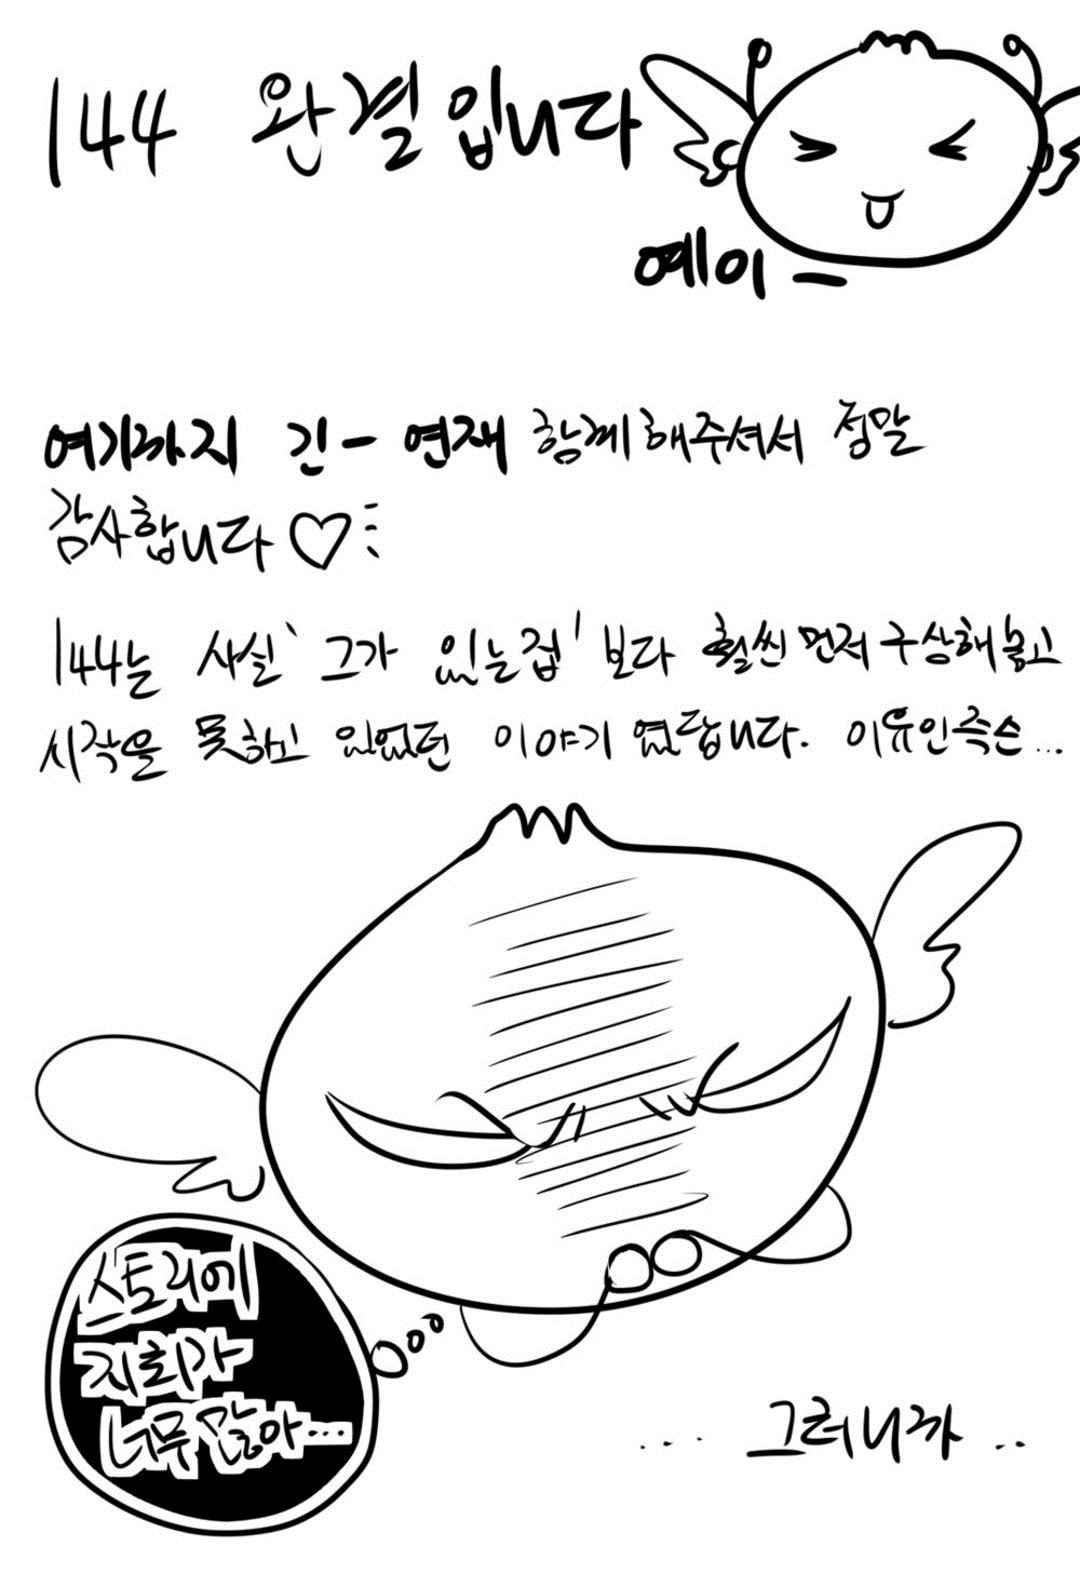 144 완결입니다
예이ㅡ
여기까지 긴ㅡ 연재 함께해주셔서 정말
감사합니다♡
144는 사실 '그가 있는집' 보다 훨씬 먼저 구상해놓고
시작을 못하고 있었던 이야기 였답니다. 이유인즉슨...
스토리에
지뢰가
너무많아...
... 그러니까 ..